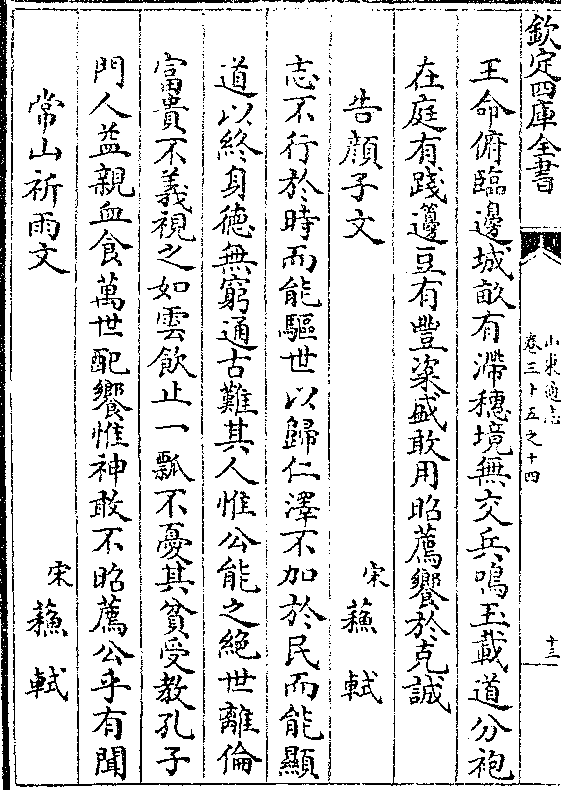 欽定四庫全書
山東通志
卷三十五之十四
十三
王命俯臨邊城畝有滯穗境無交兵鳴玉載道分袍
在庭有踐籩豆有豐粢盛敢用昭薦饗於克誠
告顔子文
宋 蘓軾
志不行於時而能驅世以歸仁澤不加於民而能顯
道以終身德無窮通古難其人惟公能之絶世離倫
富貴不義視之如雲飲止一瓢不憂其貧受教孔子
門人益親血食萬世配饗惟神敢不昭薦公乎有聞
常山祈雨文
宋 蘓軾